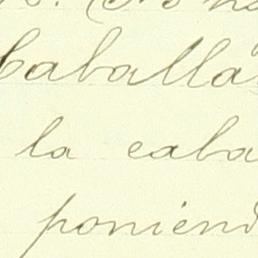 Caballa
la caba
poniend